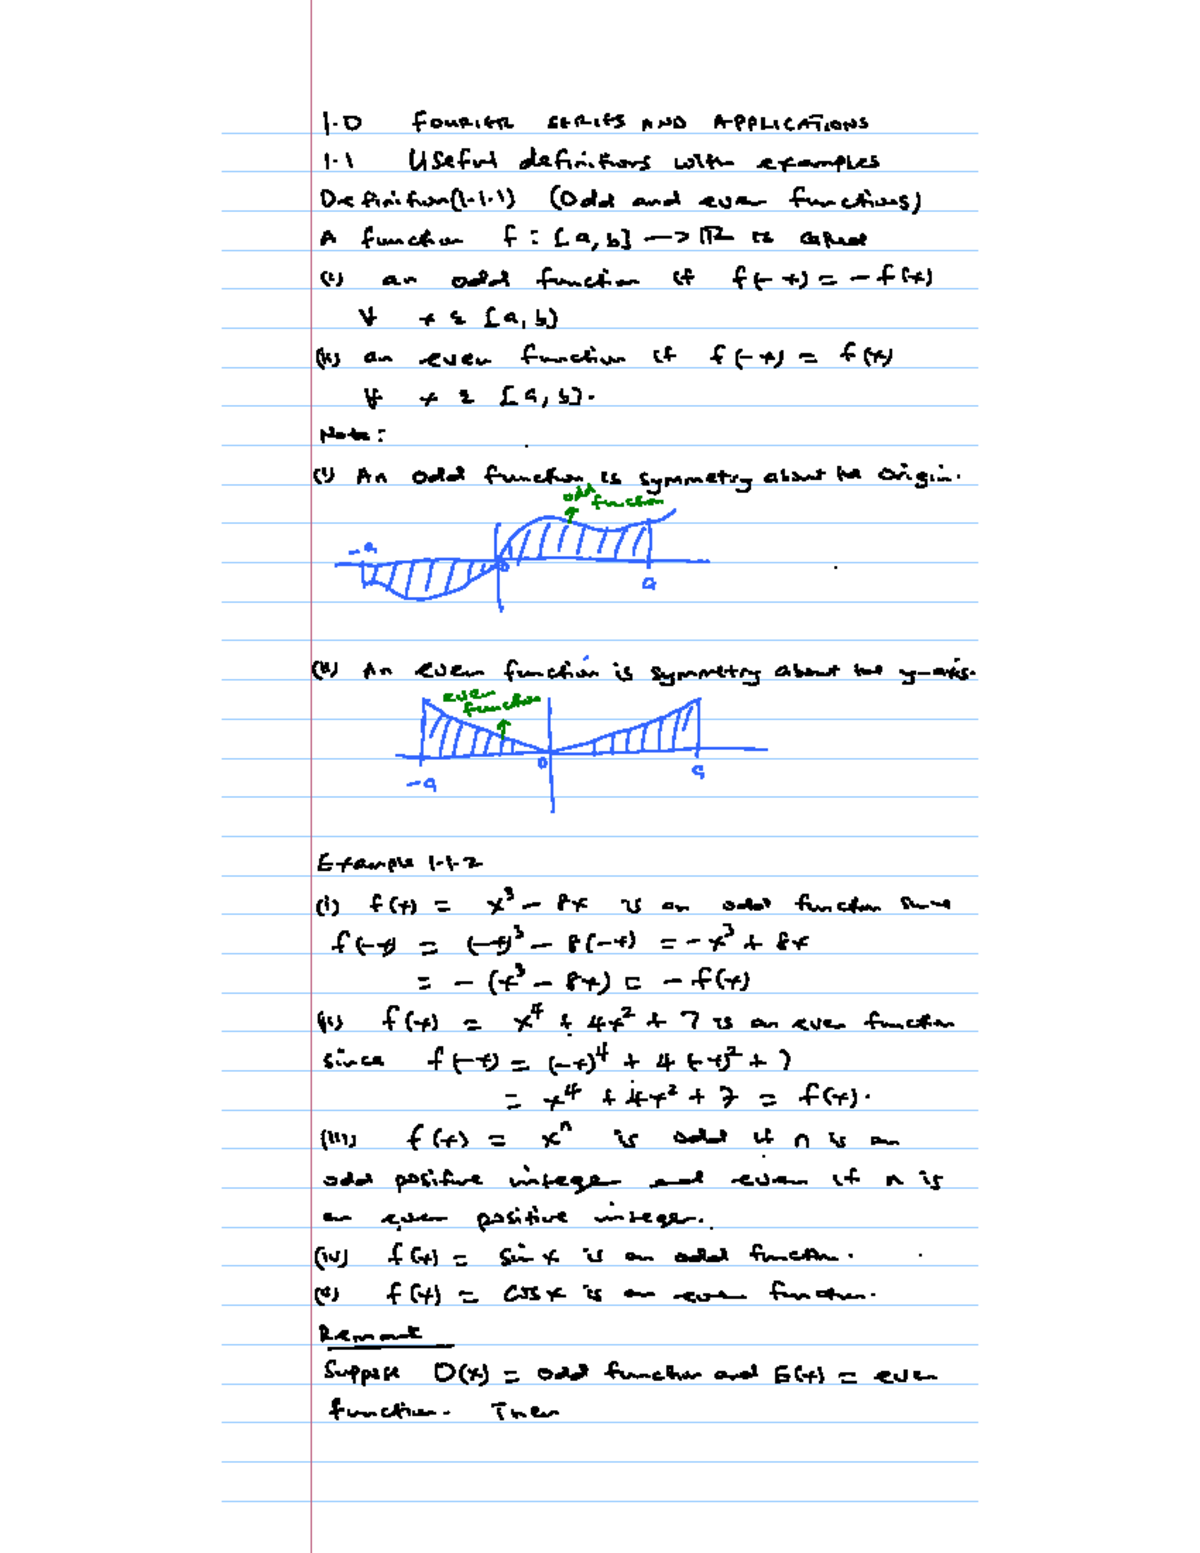 1.0 FOURIER SERIES AND APPLICATIONS
1.1 Useful definitions with examples
Definition(1.1.1) (Odd and even functions)
A function f : [a, b] → ℝ is called
(i) an odd function if f(-x) = -f(x)
∀ x ε [a, b]
(ii) an even function if f(-x) = f(x)
∀ x ε [a, b].
Note:
(i) An odd function is symmetry about the origin.
odd
function
-a
0
a
(ii) An even function is symmetry about the y-axis.
even
function
0
a
-a
Example 1.1.2
(i) f(x) = x³ - 8x is an odd function since
f(-x) = (-x)³ - 8(-x) = -x³ + 8x
= -(x³ - 8x) = -f(x)
(ii) f(x) = x⁴ + 4x² + 7 is an even function
since f(-x) = (-x)⁴ + 4(-x)² + 7
= x⁴ + 4x² + 7 = f(x).
(iii) f(x) = xⁿ is odd if n is an
odd positive integer and even if n is
an even positive integer.
(iv) f(x) = sin x is an odd function.
(v) f(x) = cos x is an even function.
Remark
Suppose O(x) = odd function and E(x) = even
function. Then